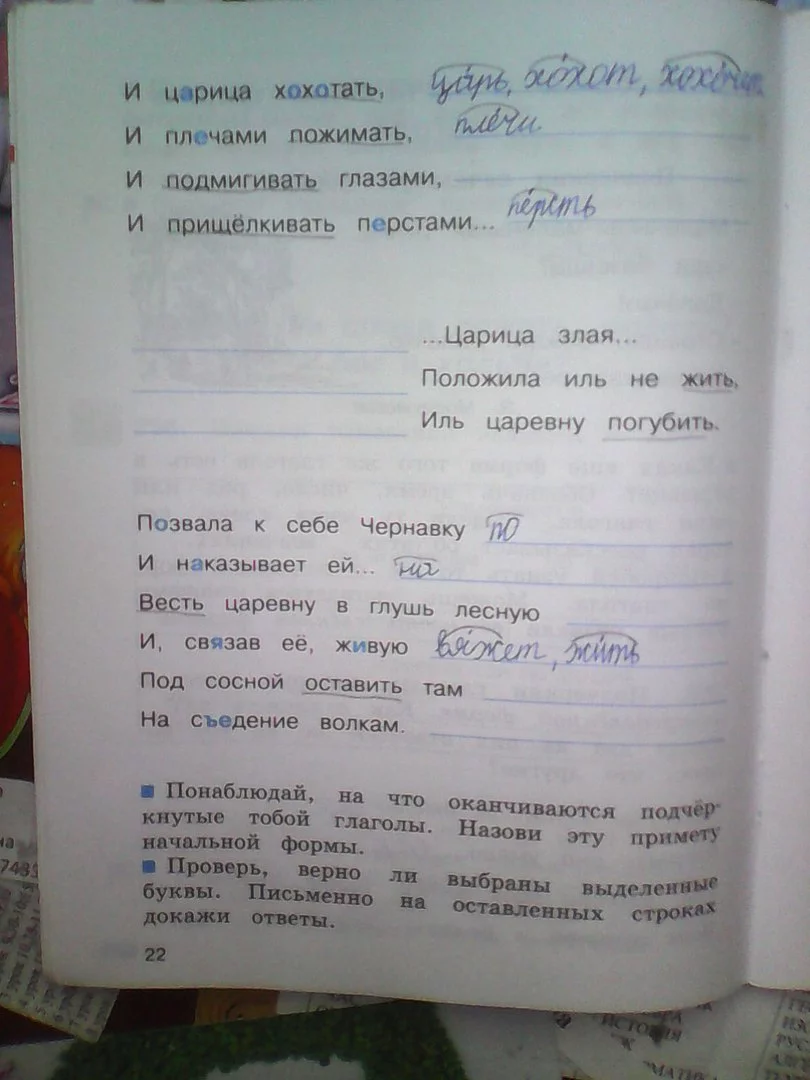 И царица хохотать, царь, хохот, хохочет
И плечами пожимать, плечи.
И подмигивать глазами,
И прищёлкивать перстами... персть
...Царица злая...
Положила иль не жить,
Иль царевну погубить.
Позвала к себе Чернавку по
И наказывает ей... на
Весть царевну в глушь лесную
И, связав её, живую вяжет, жить
Под сосной оставить там
На съедение волкам.
Понаблюдай, на что оканчиваются подчёр-
кнутые тобой глаголы. Назови эту примету
начальной формы.
Проверь, верно ли выбраны выделенные
буквы. Письменно на оставленных строках
докажи ответы.
22
ИСТОРИЯ